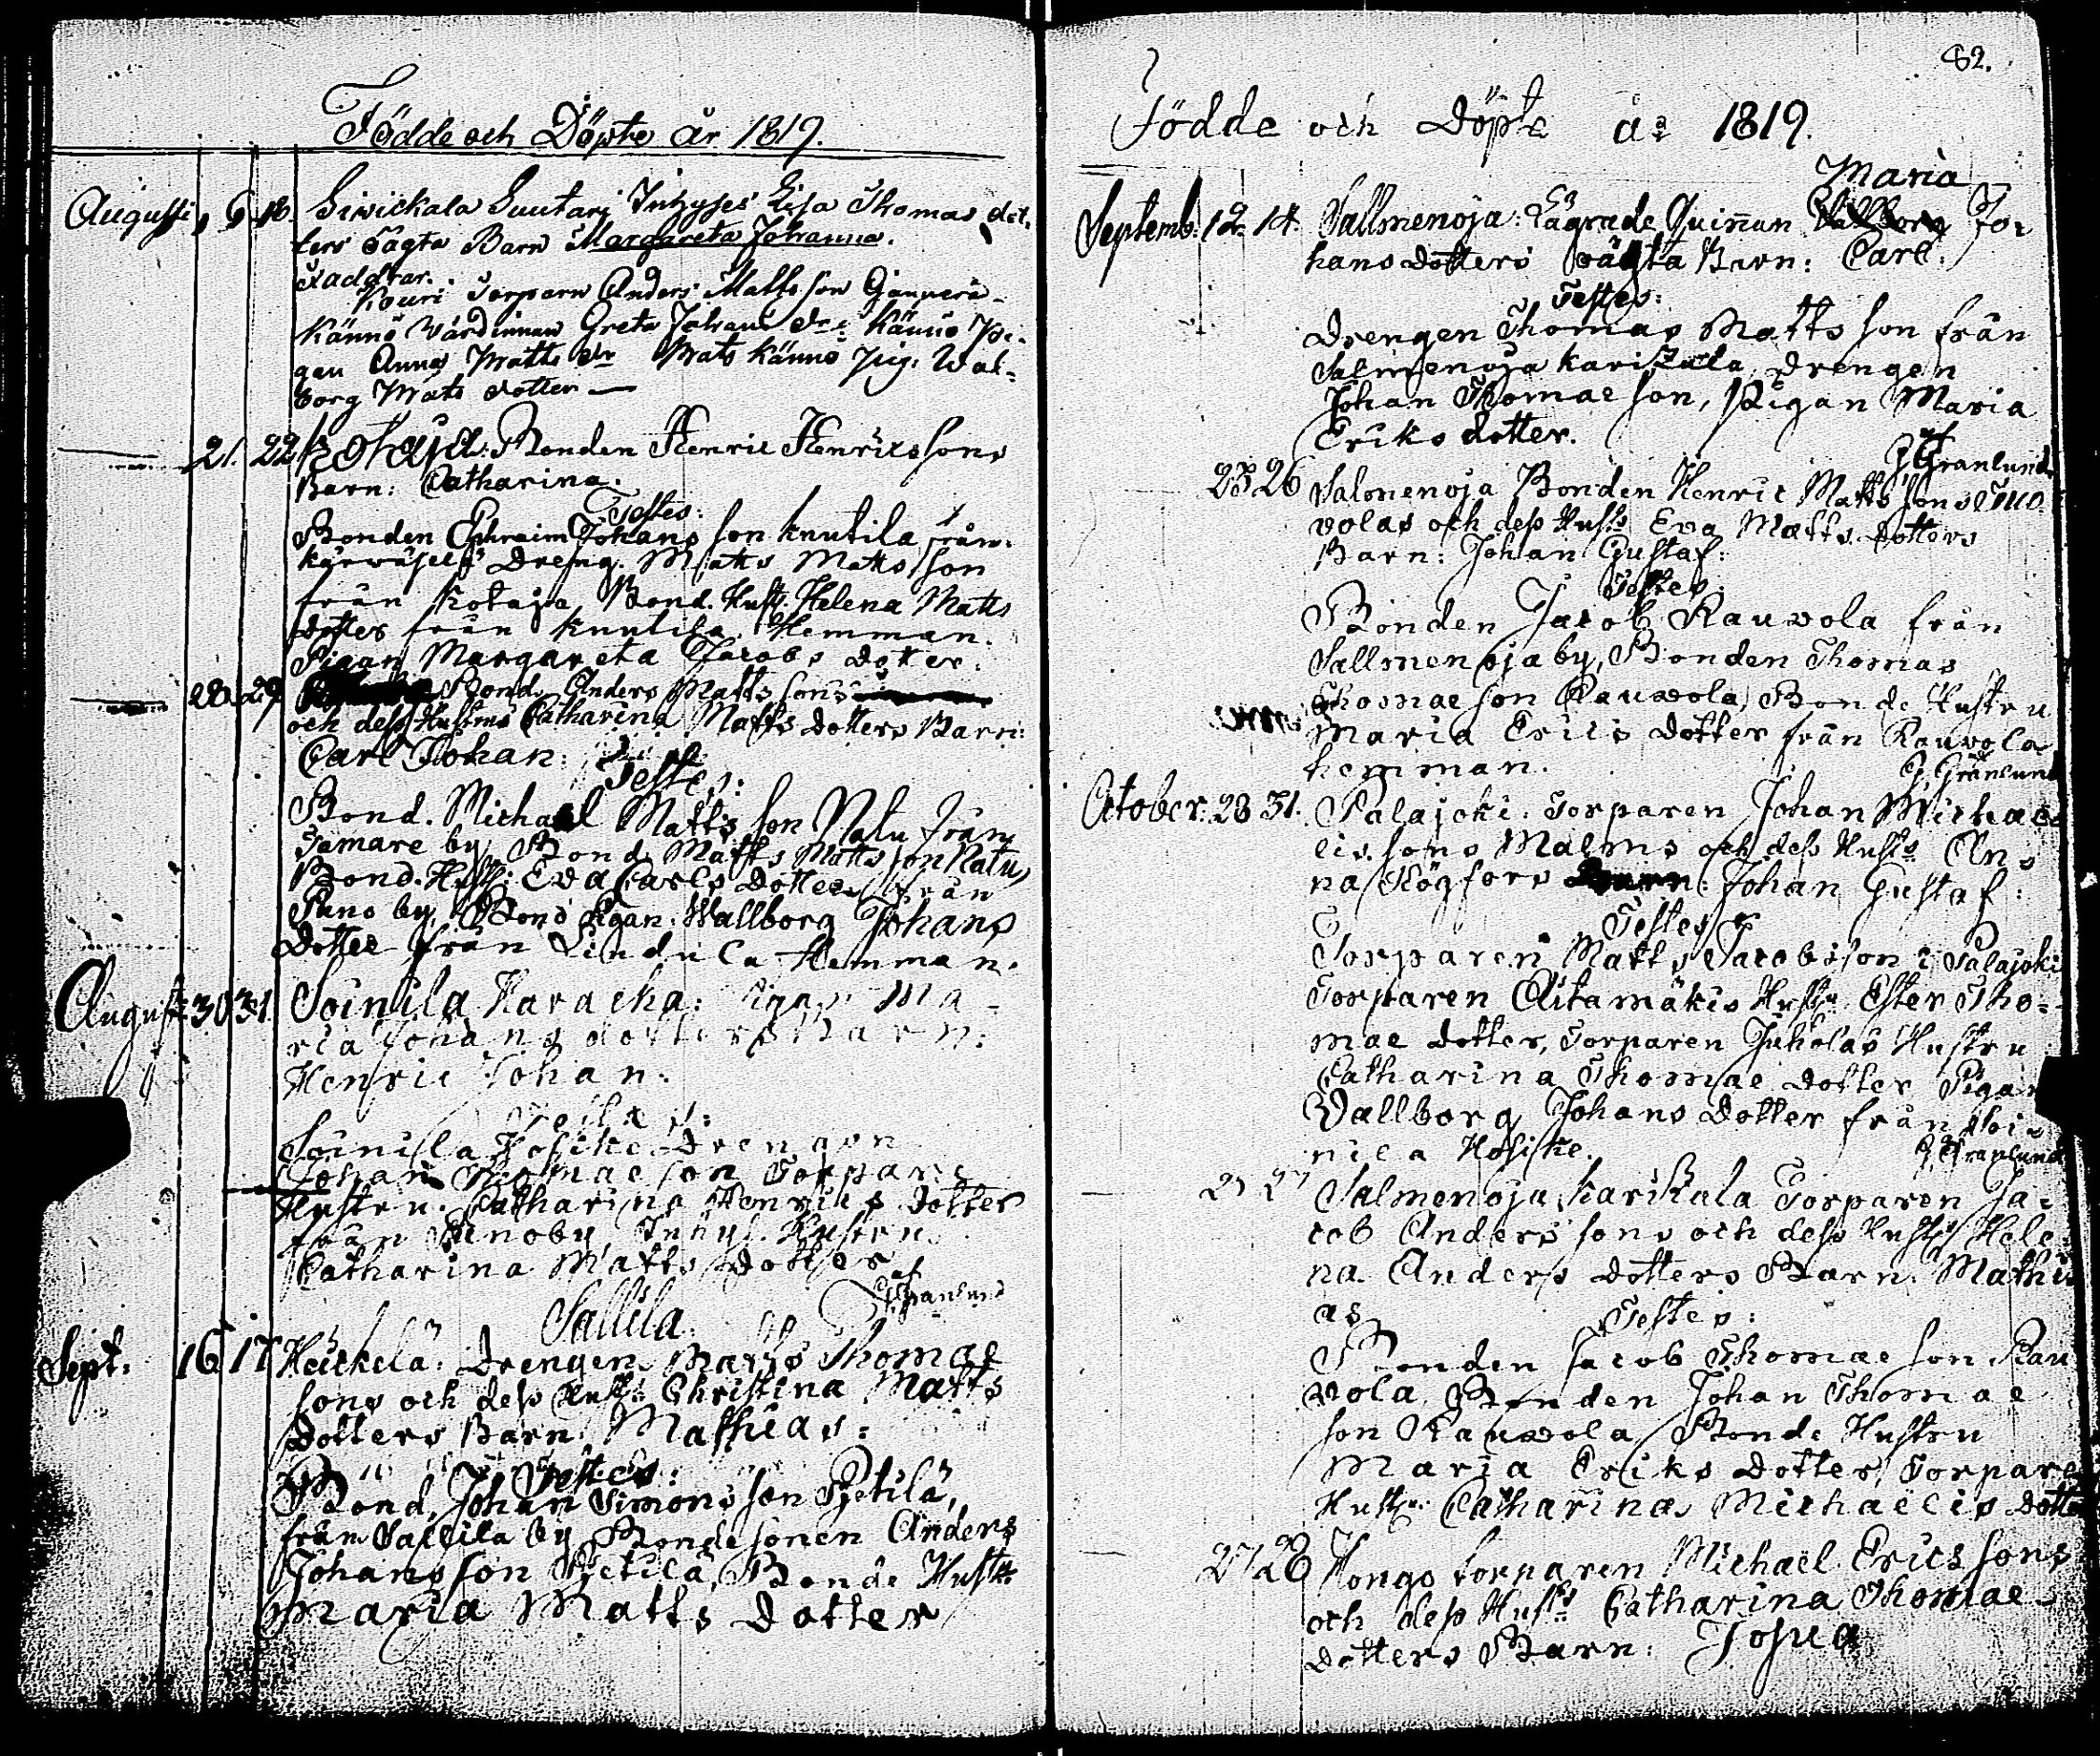 Födde och Döpte år 1819.
Augusti 9 18. Sirickala Suutari Inhyses Lisa Thomas dot-
ters oägta Barn Margareta Johanna.
Faddrar.
Kouri Torparn Anders Matts son
Kännö Värdinnan Greta Johans dr: Kännö Pi-
gan Anna Matts dr Mats Kännö Pig: Wal-
borg Mats dotter —
21. 22 Kotaja: Bonden Henric Henrics sons
Barn: Catharina.
Testes:
Bonden Ephraim Johans son Knutila från
Dreng. Matts Matts son
från Kotaja, Bond. Hust. Helena Matts
dotter från Knutila Hemman.
Pigan Margareta Jacobs dotter.
28. 29 Bond. Anders Matts sons
och dess Hustrus Catharina Matts dotters Barn:
Carl Johan:
Testes:
Bond. Michael Matts son Natu från
by, Bond. Matts Matts son Natu,
Bond. Hust: Eva Carls dotter från
by, Bond Pigan. Wallborg Johans
dotter från Lindula Hemman.
August: 30 31. Soinila Haracka: Pigan Ma-
ria Johans dotters Barn:
Henric Johan.
Testes:
Soinila Hosike Drengen
Johan Thomae son Torpare
Hustru. Catharina Henriks dotter
från by, Inhys. Hustru
Catharina Matts dotter
af
Granlund
Sallila.
Sept. 16 17 Heickelä: Drengen Matts Thomae
sons och dess Hust: Christina Matts
Dotters Barn: Mathias:
Testes:
Bond. Johan Simons son Pietilä,
från Sallila by, Bonde sonen Anders
Johans son Pietilä, Bonde Hust:
Maria Matts dotter
82.
Födde och Döpte år 1819.
Maria
Septemb: 12. 14. Sallmenoja: Lägrade Quinnan Jo-
hans dotters oägta Barn: Carl.
Testes:
Drengen Thomas Matts son från
Salmenoja Karikala, Drengen
Johan Thomae son, Pigan Maria
Eriks dotter.
af
G Granlund
25 26 Salmenoja Bonden Henric Matts sons
volas och dess Husts Eva Matts dotters
Barn: Johan Gustaf:
Testes:
Bonden Jacob Rauvola från
Sallmenoja by, Bonden Thomas
Thomae son Rauvola, Bonde Hustru
Maria Erics dotter från Rauvola
hemman.
G Granlund
October: 28 31. Palajoki: Torparen Johan Michae-
lis. sons Malms och dess Husts An-
na Högfors Barn: Johan Gustaf:
Testes:
Torparen Matts Jacobs son i Palajoki
Torparen Aitamäkis Hustr Ester Tho-
mae dotter, Torparen Juholas Hustru
Catharina Thomae dotter Pigan
Wallborg Johans dotter från Soi-
nila Hosike.
G Granlund
27 Salmenoja, Karikala Torparen Ja-
cob Anders sons och dess Husts Hele-
na Anders dotters Barn: Mathi-
as
Testes:
Bonden Jacob Thomae son Rau
vola, Bonden Johan Thomae
son Rauvola, Bonde Hustru
Maria Eriks dotter, Torpare
Hustr. Catharina Michaelis dotter
27 28 Hongo torparen Michael Erics sons
och dess Husts Catharina Thomae
dotters Barn: Josua